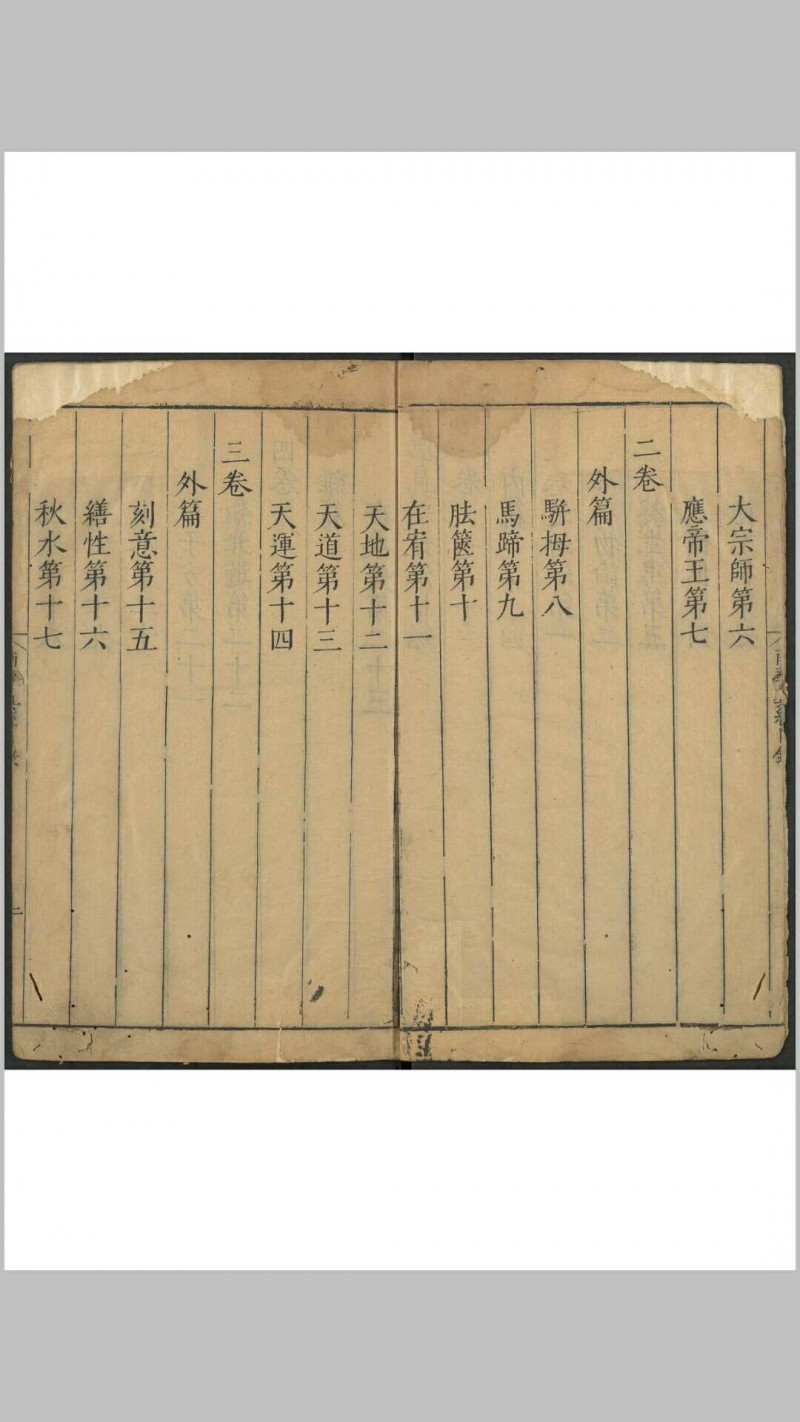 大宗師第六
應帝王第七
二卷
外篇
駢拇第八
馬蹄第九
胠篋第十
在宥第十一
天地第十二
天道第十三
天運第十四
三卷
外篇
刻意第十五
繕性第十六
秋水第十七